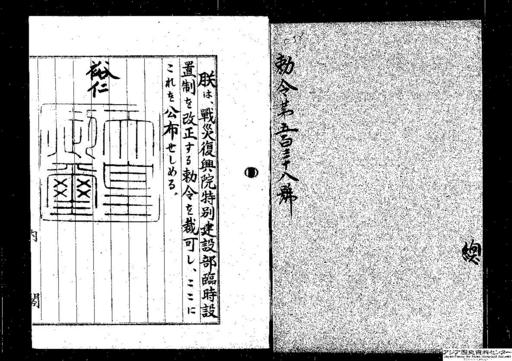 勅令第五百三十八號
總
朕は、戰災復興院特別建設部臨時設
置制を改正する勅令を裁可し、ここに
これを公布せしめる。
裕仁
天皇御璽
内閣
アジア歴史資料センター